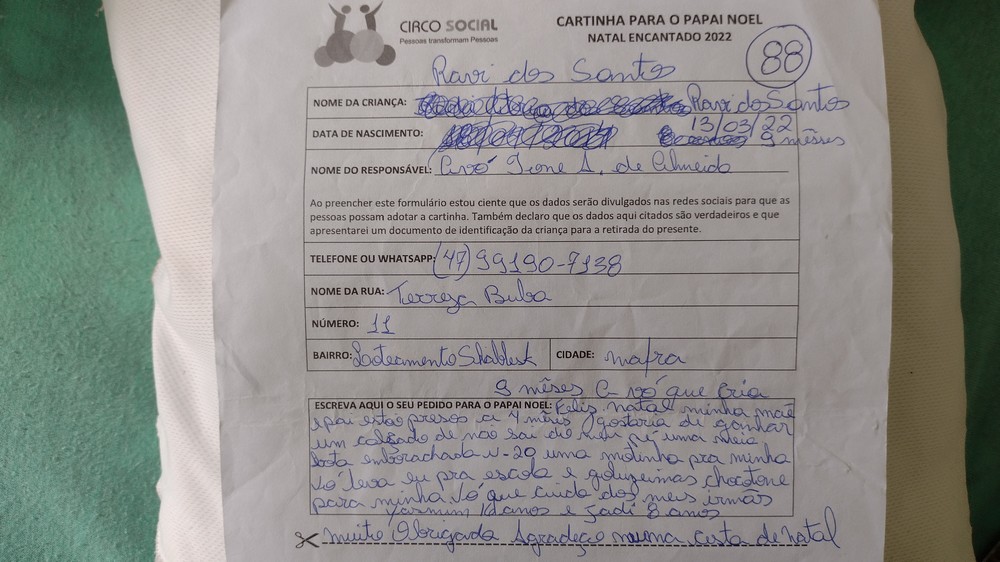 CIRCO SOCIAL
Pessoas transformam Pessoas
CARTINHA PARA O PAPAI NOEL
NATAL ENCANTADO 2022
88
Ravi dos Santos
NOME DA CRIANÇA: Ravi dos Santos
DATA DE NASCIMENTO: 13/03/22
9 mêses
NOME DO RESPONSÁVEL: Avó Ione A. de Almeida
Ao preencher este formulário estou ciente que os dados serão divulgados nas redes sociais para que as
pessoas possam adotar a cartinha. Também declaro que os dados aqui citados são verdadeiros e que
apresentarei um documento de identificação da criança para a retirada do presente.
TELEFONE OU WHATSAPP: (47) 99190-7138
NOME DA RUA: Terreza Buba
NÚMERO: 11
BAIRRO: Loteamento CIDADE: mafra
9 mêses A vó que cria
ESCREVA AQUI O SEU PEDIDO PARA O PAPAI NOEL: Feliz natal minha mãe
e pai estão presos a mêses gostaria di ganhar
um calçado de não sai do meu pé uma meia
bota emborachada N-20 uma motinha pra minha
vó leva eu pra escola e guluzeimas chocotone
para minha vó que cuida dos meus irmãs
Yasmim anos e Jadi 8 anos
muito Obrigada Agradeço numa cesta de natal